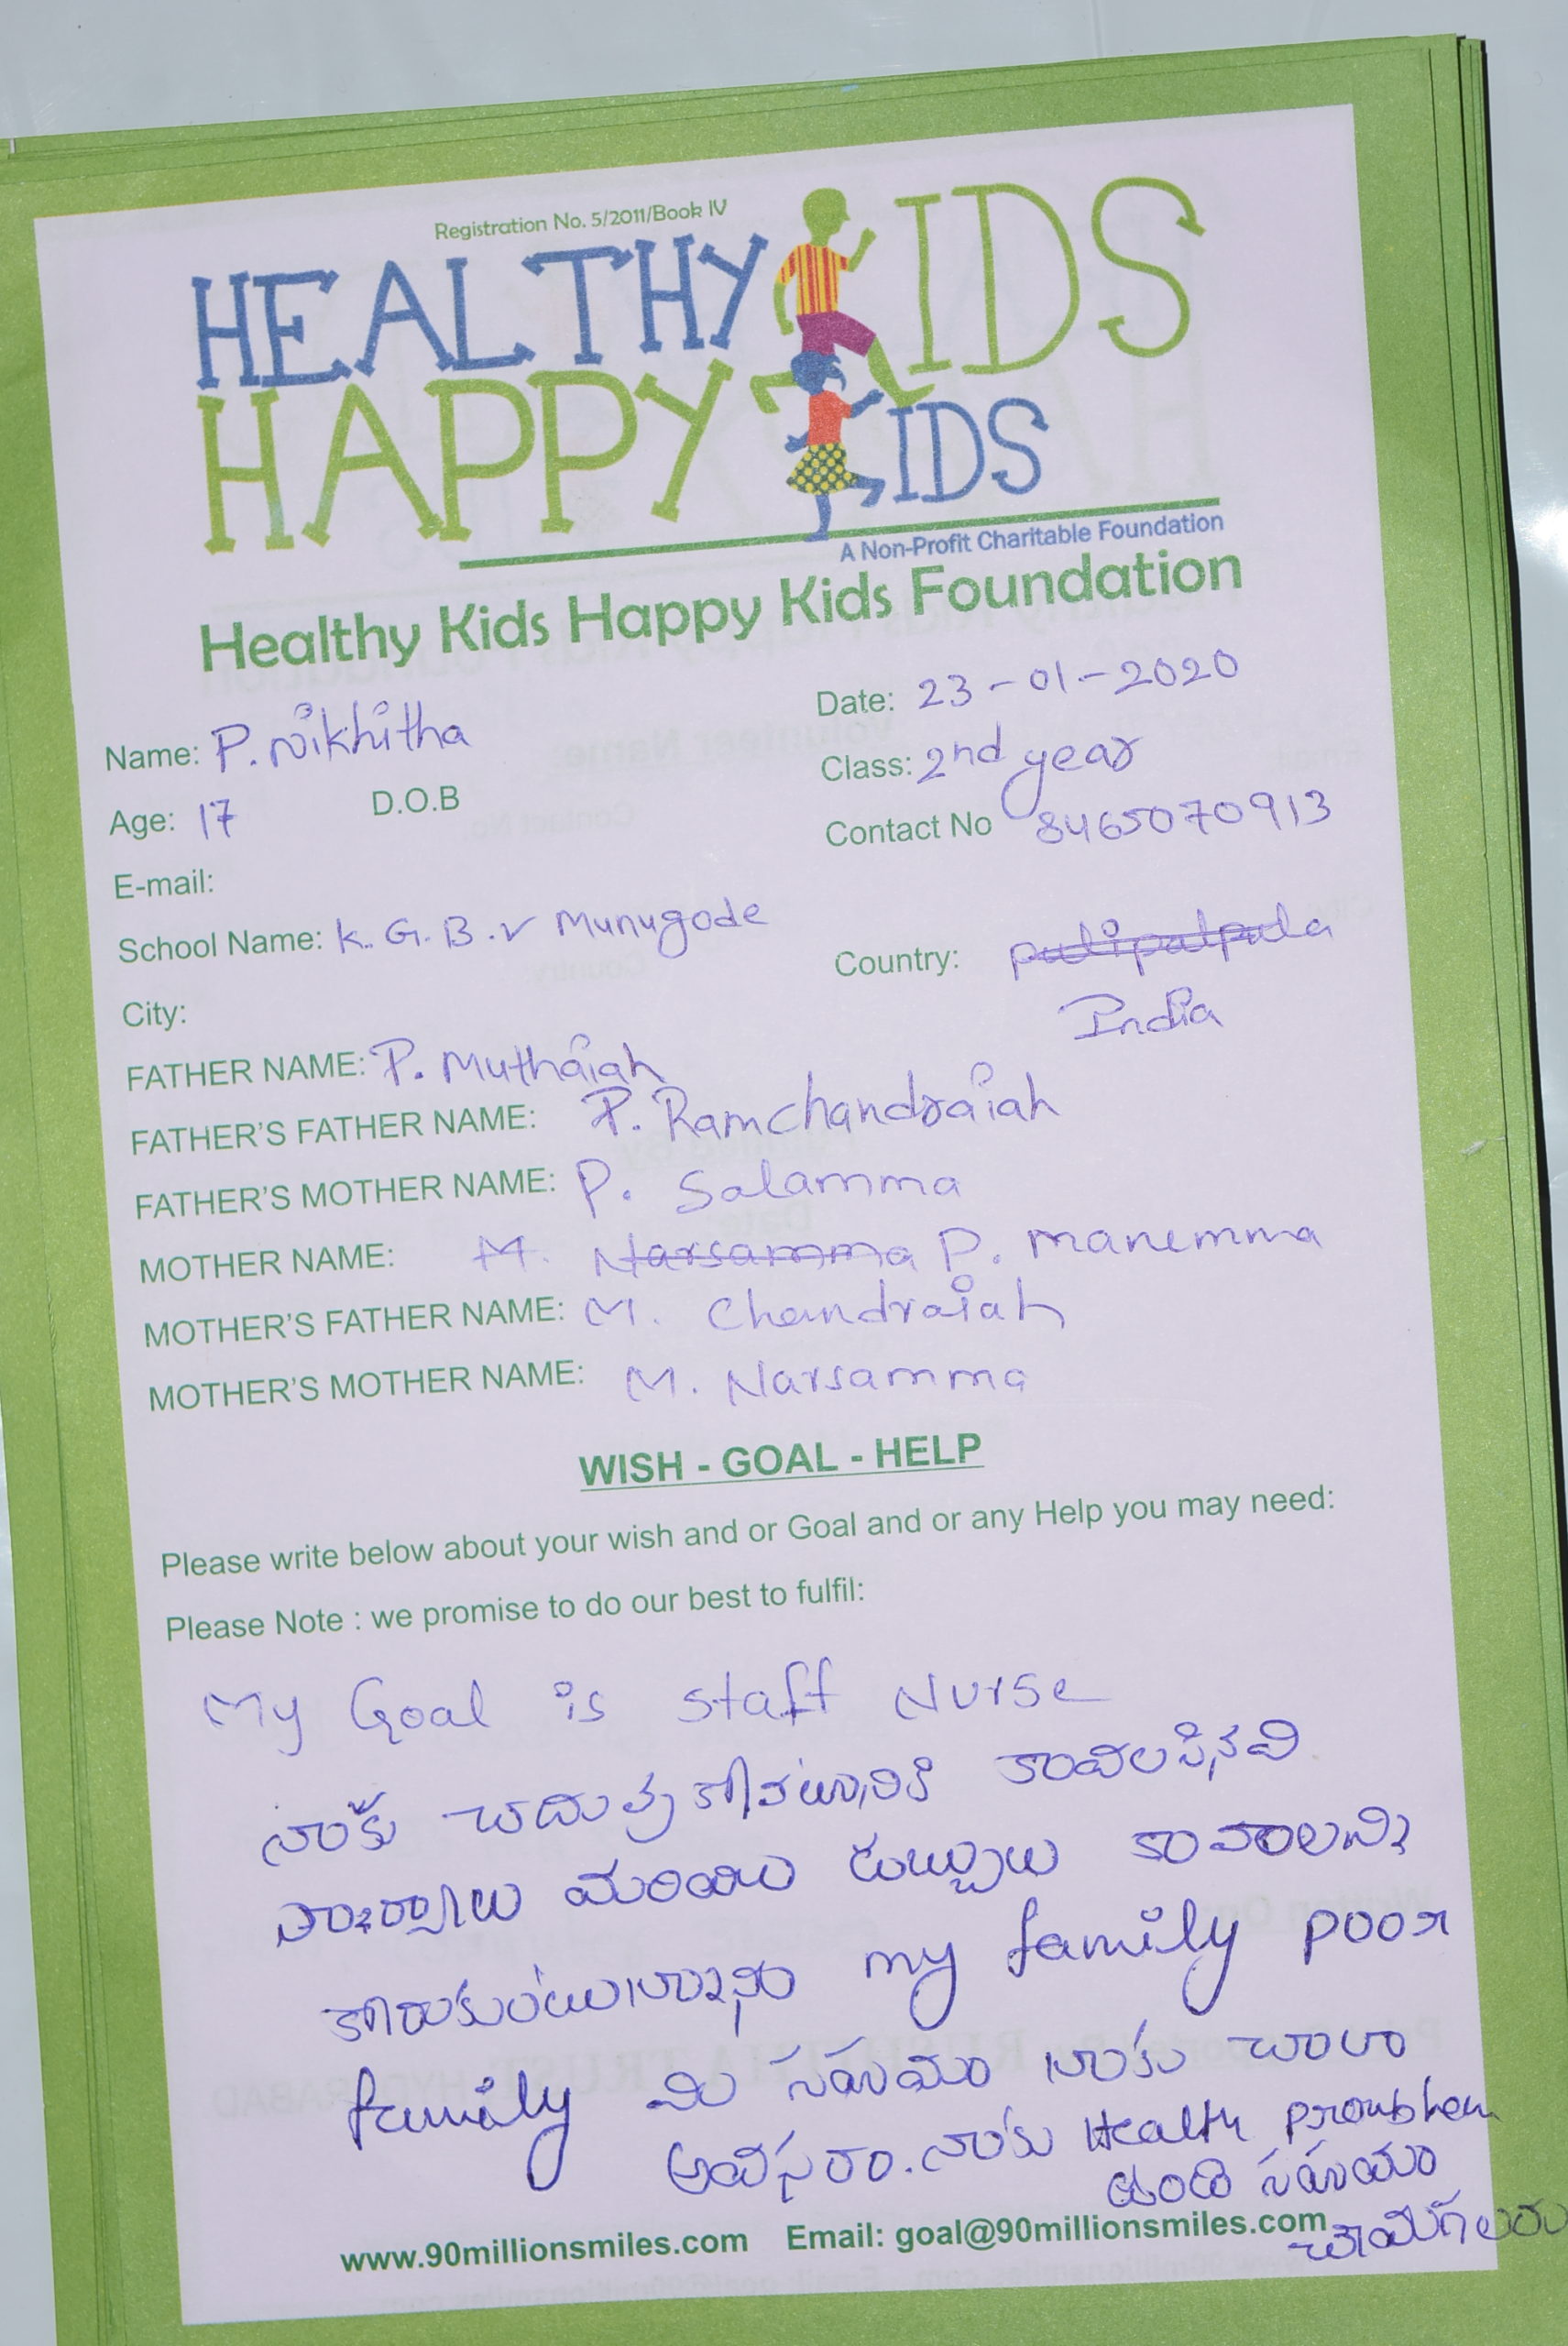 Registration No. 5/2011/Book IV
HEALTHY KIDS
HAPPY KIDS
A Non-Profit Charitable Foundation
Healthy Kids Happy Kids Foundation
Date: 23-01-2020
Name: P. Nikhitha
Class: 2nd year
Age: 17 D.O.B
Contact No 8465070913
E-mail:
School Name: K.G.B.V Munugode
Country: pulipalpula
India
City:
FATHER NAME: P. Muthaiah
FATHER'S FATHER NAME: P. Ramchandraiah
FATHER'S MOTHER NAME: P. Salamma
MOTHER NAME: M. Narsamma P. Manemma
MOTHER'S FATHER NAME: M. Chandraiah
MOTHER'S MOTHER NAME: M. Narsamma
WISH - GOAL - HELP
Please write below about your wish and or Goal and or any Help you may need:
Please Note : we promise to do our best to fulfil:
My Goal is staff Nurse
నాకు చదువుకోవటానికి కావలసినవి
మరియు డబ్బులు కావాలని
కోరుకుంటున్నాను my family poor
family మీ సహాయం నాకు చాలా
అవసరం. నాకు Health proubhem
ఉంది సహాయం
చేయగలరు
www.90millionsmiles.com Email: goal@90millionsmiles.com